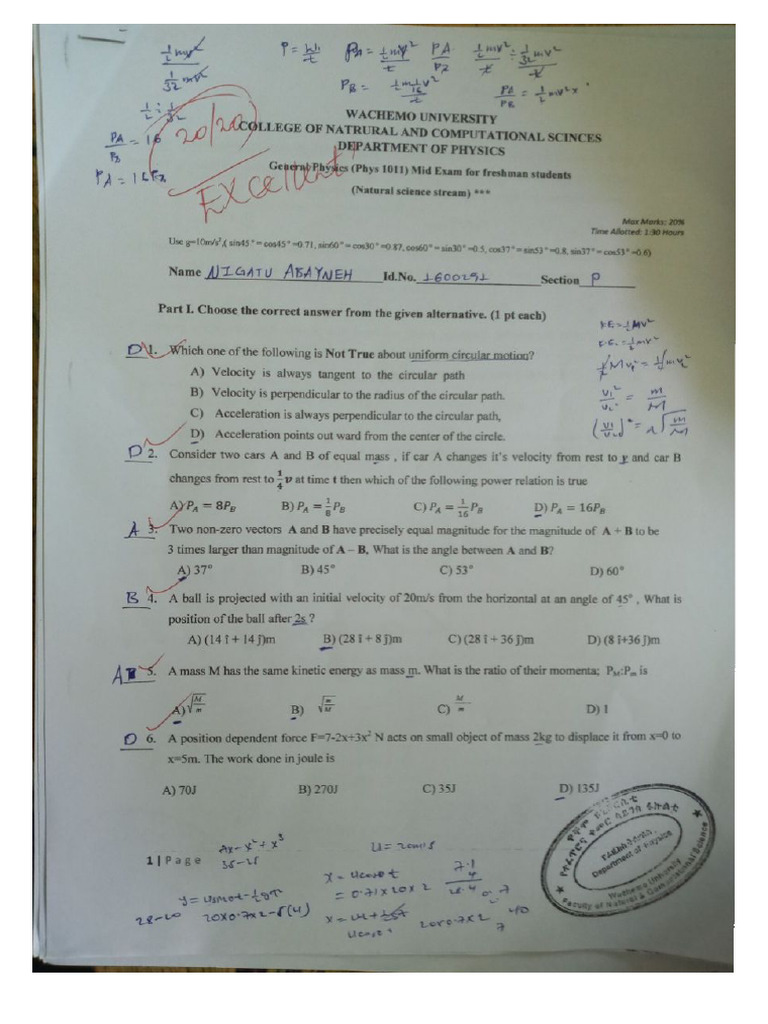 ½mv²
1/32 mv²
P = W/t
PA = ½mv²/t
PA/PB
½mv²/t ÷ 1/32 mv²/t
PB = ½m 1/16 v²/t
PA/PB = ½mv² x
½ ÷ 1/32
PA/PB = 16
20/20
Excellent!
WACHEMO UNIVERSITY
COLLEGE OF NATRURAL AND COMPUTATIONAL SCINCES
DEPARTMENT OF PHYSICS
General Physics (Phys 1011) Mid Exam for freshman students
(Natural science stream) ***
Max Marks: 20%
Time Allotted: 1:30 Hours
Use g=10m/s²,( sin45°=cos45°=0.71, sin60°=cos30°=0.87, cos60°=sin30°=0.5, cos37°=sin53°=0.8, sin37°=cos53°=0.6)
Name NIGATU ABAYNEH Id.No. 1600291 Section P
Part I. Choose the correct answer from the given alternative. (1 pt each)
KE = ½MV²
K.E. = ½mv²
½Mv₁² = ½mv₂²
v₁²/v₂² = m/M
D 1. Which one of the following is Not True about uniform circular motion?
A) Velocity is always tangent to the circular path
B) Velocity is perpendicular to the radius of the circular path.
C) Acceleration is always perpendicular to the circular path,
D) Acceleration points out ward from the center of the circle.
D 2. Consider two cars A and B of equal mass , if car A changes it's velocity from rest to v and car B
changes from rest to ¼v at time t then which of the following power relation is true
A) PA = 8PB B) PA = 1/8 PB C) PA = 1/16 PB D) PA = 16PB
A 3. Two non-zero vectors A and B have precisely equal magnitude for the magnitude of A + B to be
3 times larger than magnitude of A – B, What is the angle between A and B?
A) 37° B) 45° C) 53° D) 60°
B 4. A ball is projected with an initial velocity of 20m/s from the horizontal at an angle of 45° , What is
position of the ball after 2s ?
A) (14 î + 14 ĵ)m B) (28 î + 8 ĵ)m C) (28 î + 36 ĵ)m D) (8 î+36 ĵ)m
A 5. A mass M has the same kinetic energy as mass m. What is the ratio of their momenta; PM:Pm is
A) √(M/m) B) √(m/M) C) M/m D) 1
D 6. A position dependent force F=7-2x+3x² N acts on small object of mass 2kg to displace it from x=0 to
x=5m. The work done in joule is
A) 70J B) 270J C) 35J D) 135J
1 | Page
35-25
u = 20m/s
x = ucosθt
= 0.71x20x2
7.1
4
28.4
28-20
20x0.7x2-5(4)
20x0.7x2
Department of Physics
Wachemo University
Faculty of Natural & Computational Science